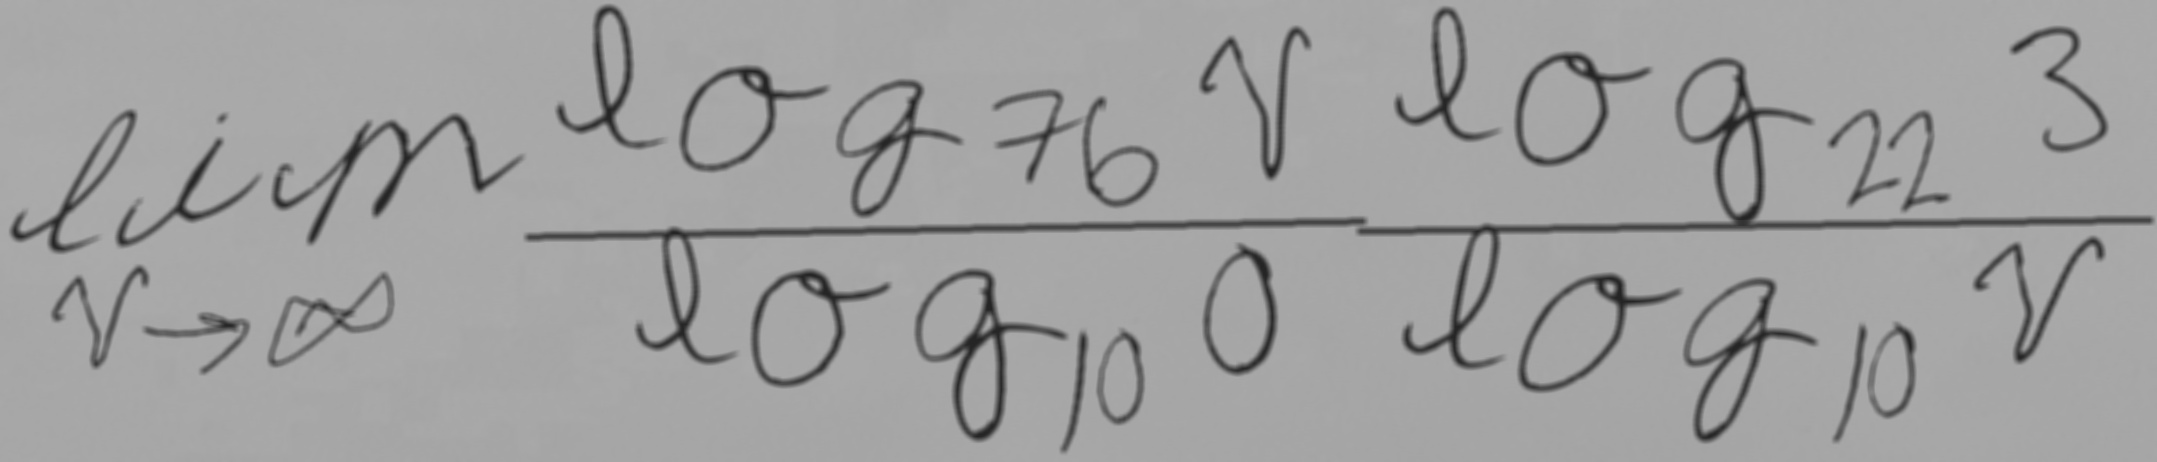 \lim_{\gamma \to \infty} \frac{\log_{76} \gamma}{\log_{10} 0} \frac{\log_{22} 3}{\log_{10} \gamma}